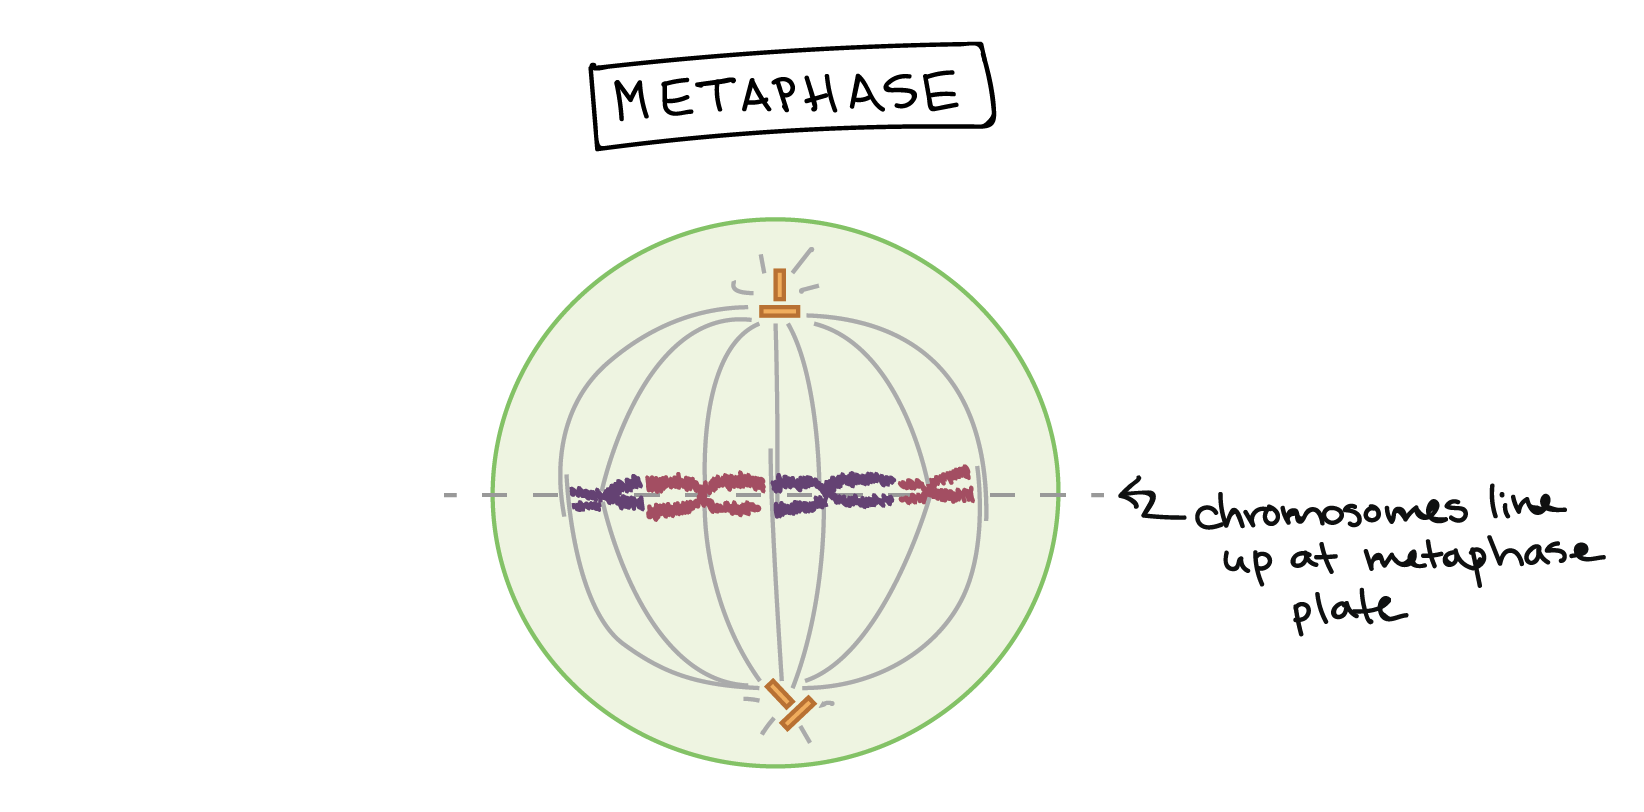 METAPHASE
chromosomes line
up at metaphase
plate